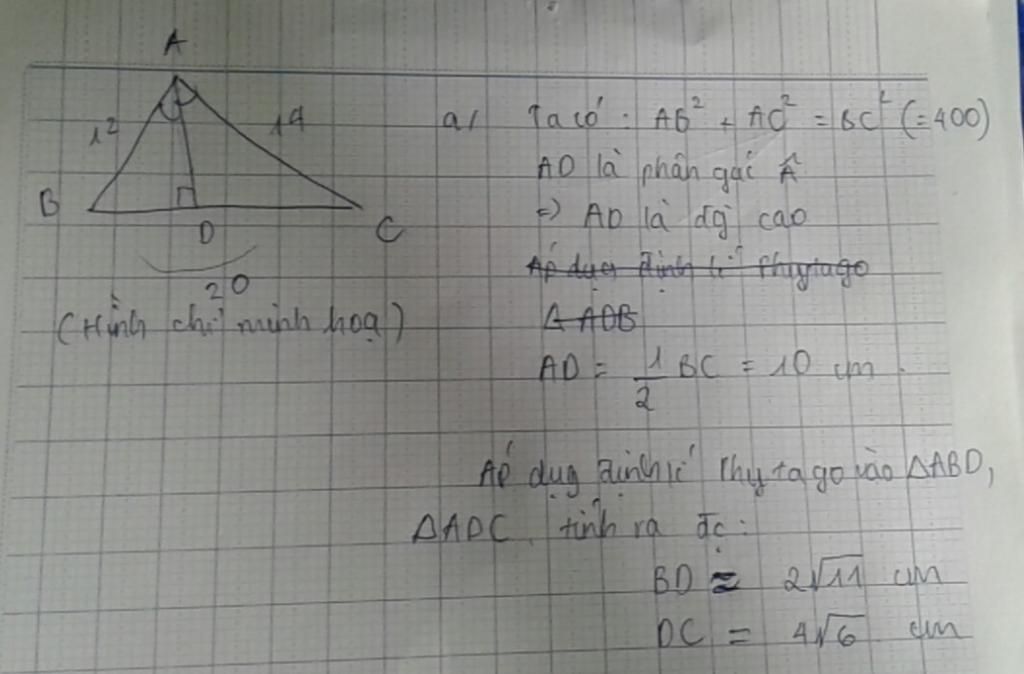 A
12
14
B
D
C
20
(Hình chỉ minh hoạ)
a/ Ta có : AB² + AC² = BC² (=400)
AD là phân gác Â
=> AD là đg cao
Áp dụg định lí Phytago
Δ ADB
AD = 1/2 BC = 10 cm.
Áp dụg định lí Phytago vào ΔABD,
ΔADC tính ra đc:
BD = 2√11 cm
DC = 4√6 cm